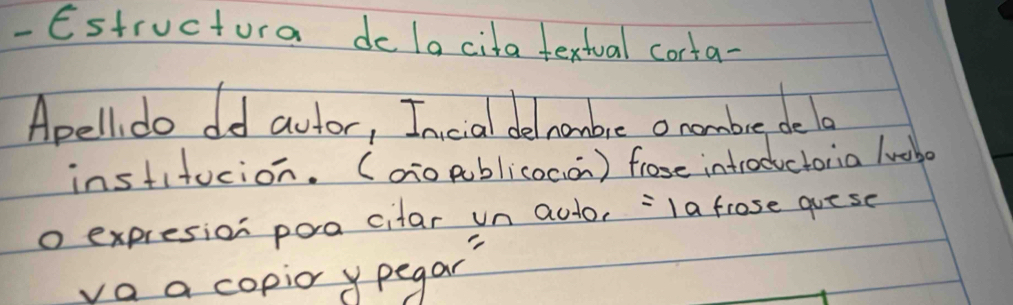 - Estructura de la cita textual corta-
Apellido del autor, Inicial del nombre o nombre de la
institución. (año publicación) frase introductoria /verbo
o expresión para citar un autor "la frase que se
va a copiar y pegar"